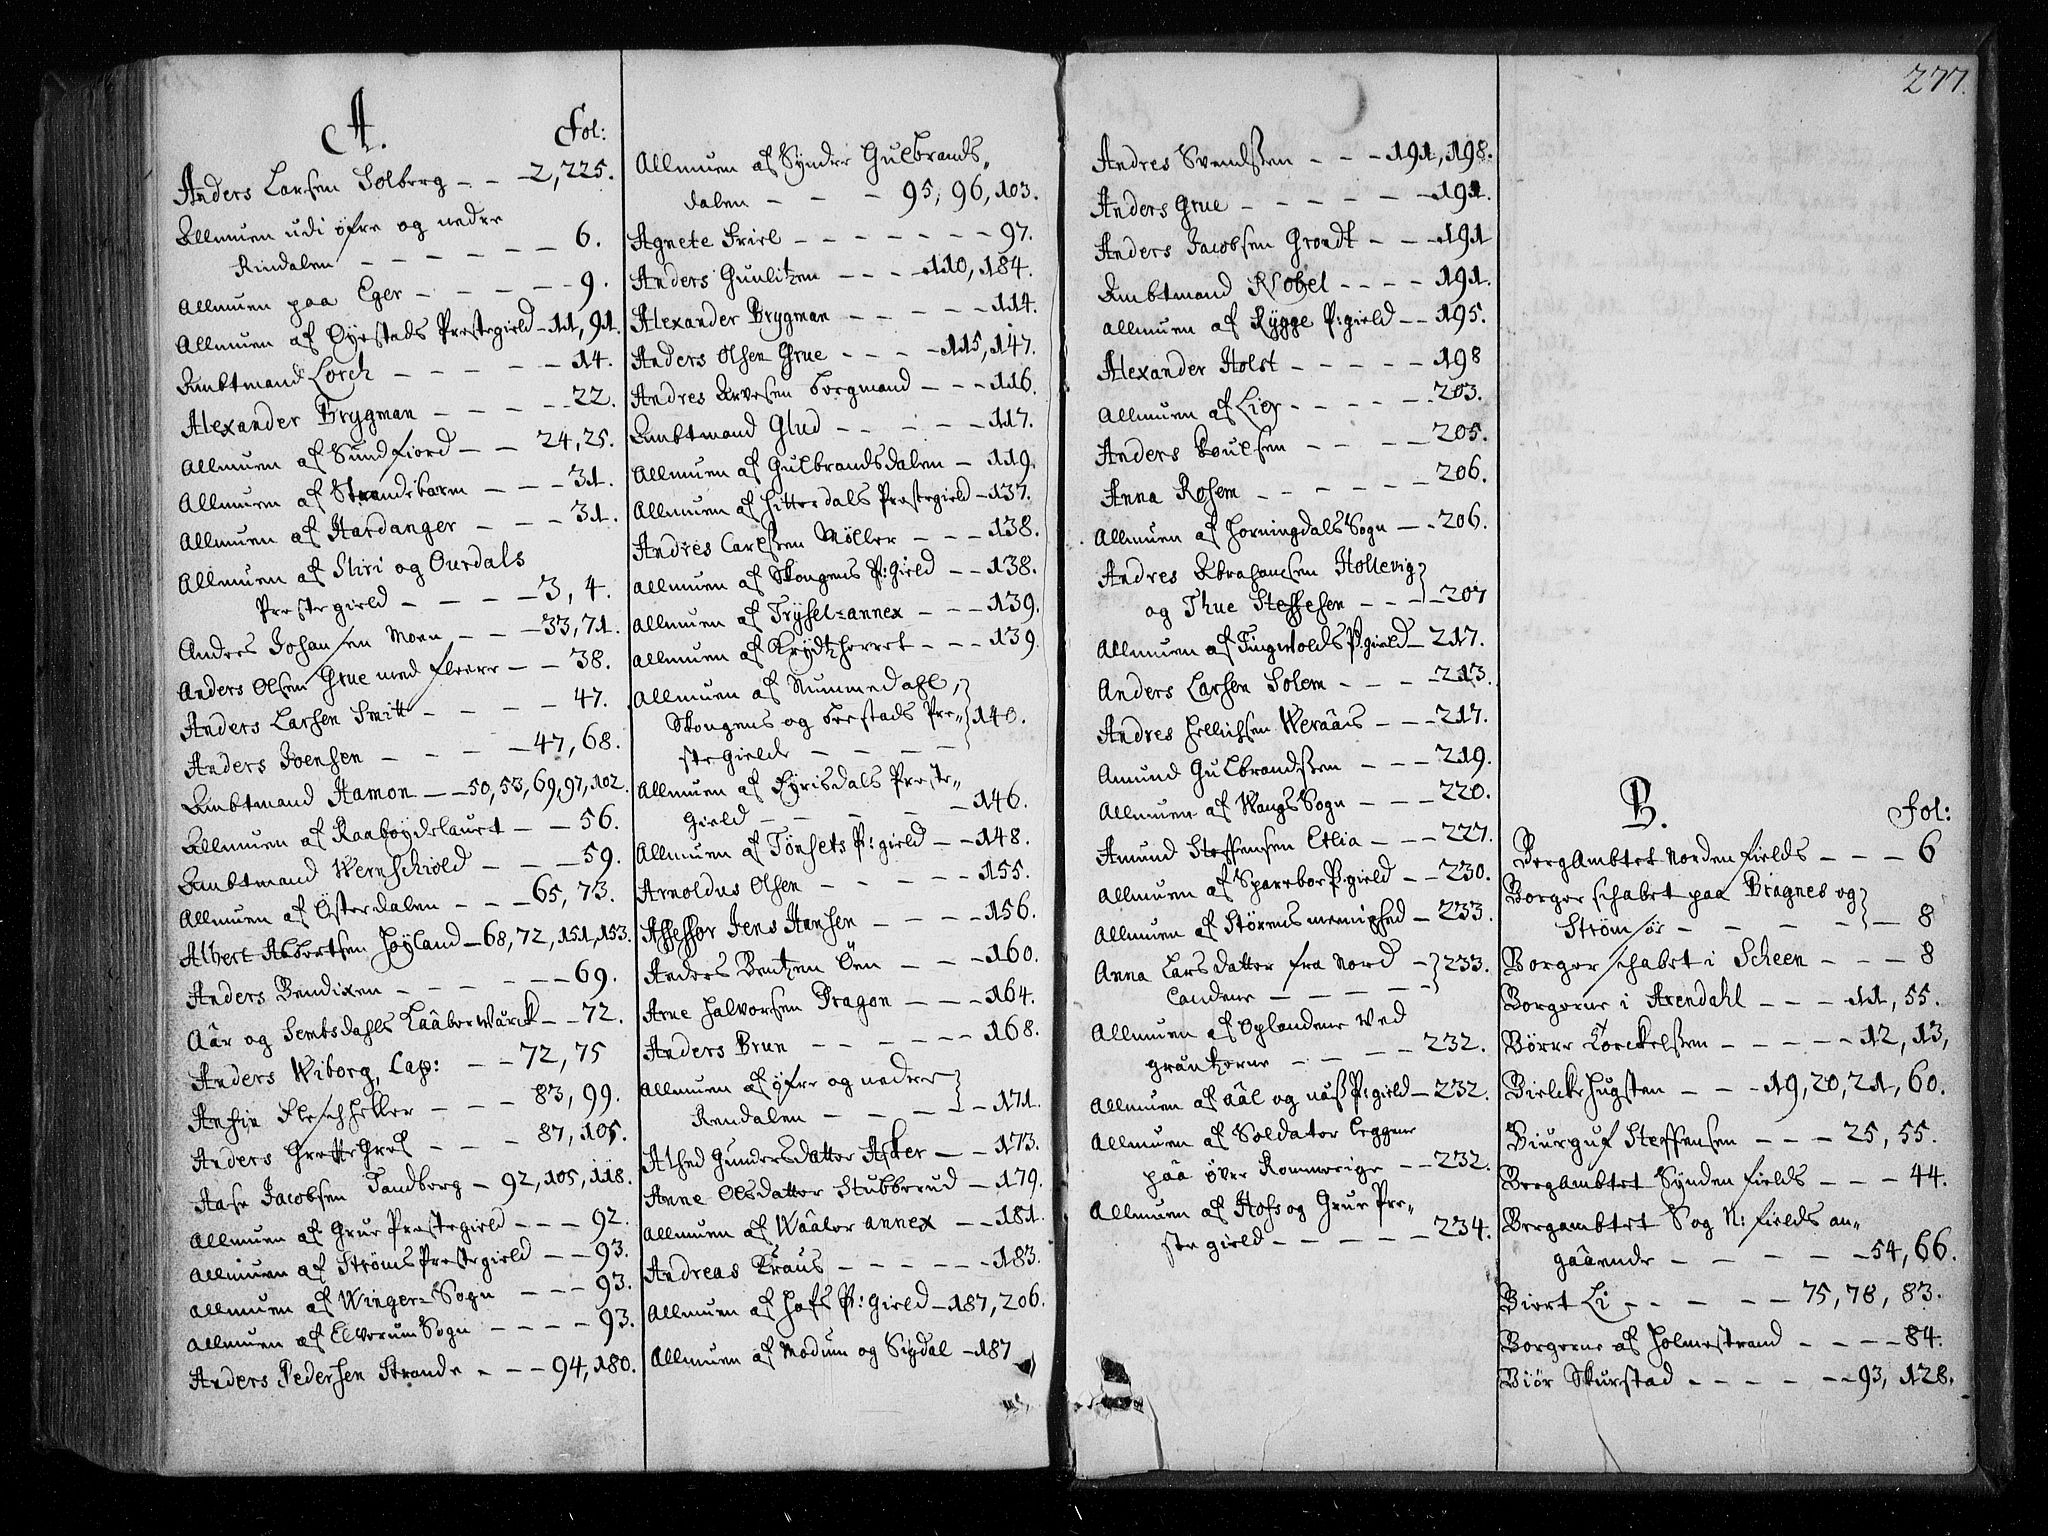 A. Fol:
Anders Larsen Solberg - - - 2, 225.
Allmuen udi øfre og nedre
Rindalen - - - - - - 6.
Allmuen paa Eger - - - - - 9.
Allmuen af Øyestads Prestegield - 11, 91.
Ambtmand Lorch - - - - - 14.
Alexander Brygman - - - - - 22.
Allmuen af Sundfiord - - 24, 25.
Allmuen af Strandebarm - - - 31.
Allmuen af Hardanger - - - 31.
Allmuen af Sliri og Ourdals
Prestegield - - - - 3, 4.
Andres Johansen Moen - - - 33, 71.
Anders Olsen Grue med fleere - - 38.
Anders Larsen Smitt - - - - 47.
Anders Joensen - - - - 47, 68.
Ambtmand Hamon - - 50, 53, 69, 97, 102.
Allmuen af Raabøydelauet - - 56.
Ambtmand Wernschiold - - - - 59.
Allmuen af Østerdalen - - - 65, 73.
Albert Albertsen Høyland - 68, 72, 151, 153.
Anders Bendixen - - - - - - 69.
Aår og Semsdahls Kaaberwärck - - 72.
Anders Wiborg, Cap: - - 72, 75
Flechheller - - - 83, 99.
Anders - - - 87, 105.
Aase Jacobsen Tandberg - 92, 105, 118.
Allmuen af Grue Prestegield - - - 92.
Allmuen af Strøms Prestegield - - 93.
Allmuen af Winger-Sogn - - - 93.
Allmuen af Elverum Sogn - - - - 93.
Anders Pedersen Strande - - - 94, 180.
Allmuen af Synder Gulbrands,
dalen - - - - 95, 96, 103.
Agnete Friel - - - - - - - 97.
Anders Gunlitzen - - - - 110, 184.
Alexander Brygman - - - - - 114.
Anders Olsen Grue - - - - 115, 147.
Andres Arvesen borgmand - - - 116.
Ambtmand Glud - - - - - 117.
Allmuen af Gulbrandsdalen - 119.
Allmuen af Hitterdals Prestegield - 137.
Andres Carlssen Møller - - - 138.
Allmuen af Skougens P: Gield - - 138.
Allmuen af Trysel-annex - - - 139.
Allmuen af Krydtzherret - - - 139.
Allmuen af Nummedahl,
Skougens og Beestads Pre-
stegielde - - - - 140.
Allmuen af Fyrisdals Preste-
gield - - - - - 146.
Allmuen af Tønsets P: gield - - 148.
Arnoldus Olsen - - - - - 155.
Assessor Jens Hansen - - - - 156.
Anders Bentzen Öen - - - 160.
Arne Halvorsen Dragon - - - 164.
Anders Brun - - - - - - 168.
Allmuen af øfre og nedre
Rendalen - - - - - 171.
Alhed Gundersdatter Asker - - 173.
Anne Olsdatter Stubberud - 179.
Allmuen af Waaler annex - - 181.
Andreas Kraus - - - - - - 183.
Allmuen af Hofs P: Gield - 187, 206.
Allmuen af Modum og Sigdal - 187
277.
Andres Svendssen - - - 191, 198.
Anders Grue - - - - - - - 191.
Anders Jacobsen Grondt - - - 191
Ambtmand Knobel - - - - 191.
Allmuen af Rygge P: gield - - 195.
Alexander Holst - - - - - 198
Allmuen af Lier - - - - - 203.
Anders Poulsen - - - - - 205.
Anna Rosem - - - - - - 206.
Allmuen af Horningdals Sogn - - 206.
Andres Abrahamsen Hollevig
og Thue Steffesen - - - - 207
Allmuen af Tingwolds P: gield - 217.
Anders Larsen Solem - - - - 213.
Andres Hellichsen Weraaes - - - 217.
Amund Gulbrandssen - - - 219.
Allmuen af Wangs Sogn - - - 220.
Amund Steffensen Etlia - - - 227.
Allmuen af Sparebor P: gield - - 230.
Allmuen af Størens menighed - 233.
Anna Larsdatter fra Nord -
Landene - - - - - 233.
Allmuen af Oplandene ved
gräntzerne - - - - - 232.
Allmuen af Aål og näss P: gield - 232.
Allmuen af Soldater Leggene
paa øvre Rommerige - - 232.
Allmuen af Hofs og Grue Pre-
stegield - - - - - - 234.
B. Fol:
BergAmbtet Nordenfields - - - 6
Borgerschabet paa Bragnes og
Strømsøe - - - - - 8
Borgerschabet i Scheen - - - 8
Borgerne i Arendahl - - - 11, 55.
Børre Torckelssen - - - - - 12, 13,
Bielcke Hugsten - - - 19, 20, 21, 60.
Biurguf Steffensen - - - 25, 55.
BergAmbtet Syndenfields - - - 44.
Bergambtet S og N: fields an-
gaaende - - - - - - 54, 66.
Biert Li - - - - - - 75, 78, 83.
Borgerne af Holmestrand - - - - 84.
Biør Skurstad - - - - - - 93, 128.